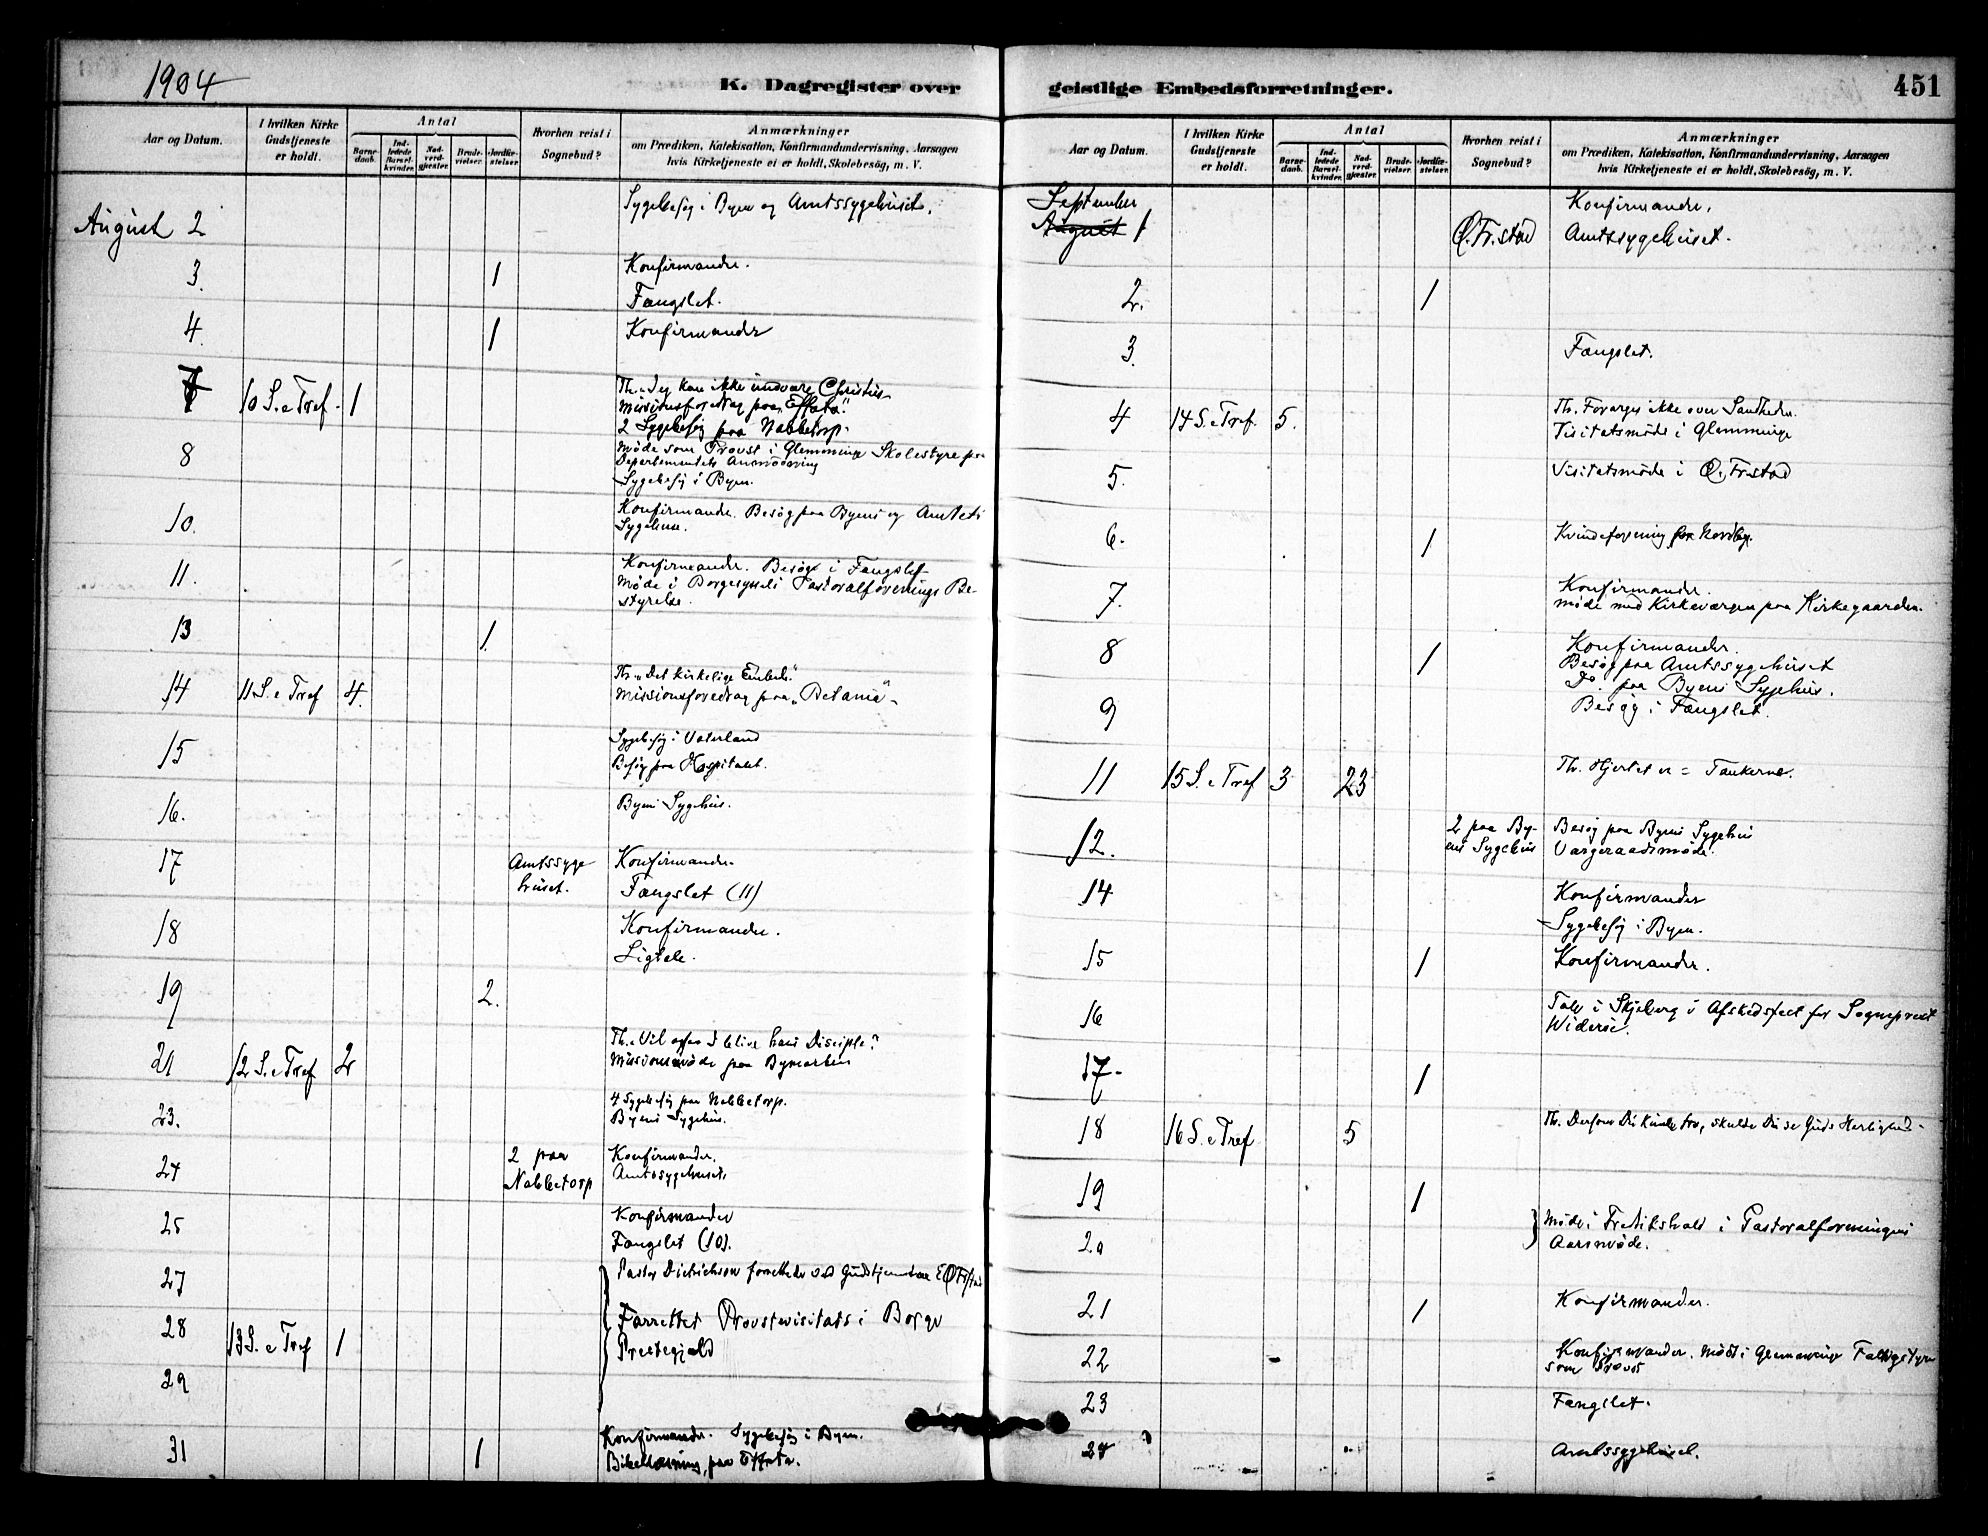 1904
K. Dagregister over
Aar og Datum.
I hvilken Kirke
Gudstjeneste
er holdt.
Antal
Barne-
daab.
Ind-
ledede
Barsel-
kvinder.
Nad-
verd-
gjester.
Brude-
vielser.
Jordfæ-
stelser.
Hvorhen reist i
Sognebud?
Anmærkninger
om Prædiken, Katekisation, Konfirmandundervisning, Aarsagen
hvis Kirketjeneste ei er holdt, Skolebesøg, m. V.
August 2 Sygebesøg i Byen og Amtssygehuset.
3. 1 Konfirmander.
Fængslet.
4. 1 Konfirmander
7 10 S. e Tref. 1 Th. Jeg kan ikke undvære Christus
Missionsforedrag paa "Effata".
2 Sygebesøg paa Nabbetorp.
8 Møde som Provst i Glemminge Skolestyre paa
Departementets Anmodning
Sygebesøg i Byen.
10. Konfirmander. Besøg paa Byens og Amtets
Sygehuse.
11. Konfirmander. Besøg i Fængslet
Møde i Borgesyssels Pastoralforenings Be-
styrelse.
13 1.
14 11 S. e Tref 4. Th. "Det kirkelige Embede."
Missionsforedrag paa "Betania".
15 Sygebesøg i Vaterland
Besøg paa Hospitalet.
16. Byens Sygehus.
17 Amtssyge
huset. Konfirmander
Fængslet (11)
18 Konfirmander.
Ligtale.
19 2.
21 12 S. e Tref 2 Th. Vil ogsaa I blive hans Disciple?
Missionsmøde paa Bymarken
23. 4 Sygebesøg paa Nabbetorp.
Byens Sygehus.
24 2 paa
Nabbetorp Konfirmander.
Amtssygehuset.
25 Konfirmander
Fængslet (10).
27 Pastor Dietrichson forrettede ved Gudstjenesten
28 13 S. e Tref 1 Forrettet Provstevisitats i Borge
Prestegjæld
29
31 1 Konfirmander. Sygebesøg i Byen.
Bibellæsning paa Effata.
geistlige Embedsforretninger.
451
Aar og Datum.
I hvilken Kirke
Gudstjeneste
er holdt.
Antal
Barne-
daab.
Ind-
ledede
Barsel-
kvinder.
Nad-
verd-
gjester.
Brude-
vielser.
Jordfæ-
stelser.
Hvorhen reist i
Sognebud?
Anmærkninger
om Prædiken, Katekisation, Konfirmandundervisning, Aarsagen
hvis Kirketjeneste ei er holdt, Skolebesøg, m. V.
September Konfirmander.
August 1 Ø. Fr.stad Amtssygehuset.
2. 1
3. Fængslet.
4 14 S. e Tref. 5. Th. Forarges ikke over Sandheden.
Visitatsmøde i Glemminge
5. Visitatsmøde i Ø. Fr.stad
6. 1 Kvindeforening paa Nordby.
7. Konfirmander.
Møde med Kirkeværgen paa Kirkegaarden.
8 1 Konfirmander.
Besøg paa Amtssygehuset
Do. paa Byens Sygehus.
9 Besøg i Fængslet.
11 15 S. e Tref 3 23 Th. Hjertet er = Tankerne.
12. 2 paa By-
ens Sygehus Besøg paa Byens Sygehus
Værgeraadsmøde.
14 Konfirmander
Sygebesøg i Byen.
15 1 Konfirmander.
16 Tale i Skjeberg i Afskedsfest for Sogneprest
Widerøe.
17. 1
18 16 S. e Tref. 5 Th. Dersom Du kunde tro, skulde Du se Guds Herlighed.
19 1
20 Møde i Fredrikshald i Pastoralforeningens
Aarsmøde.
21 1 Konfirmander.
22 Konfirmander. Møde i Glemminge
som Provst
23 Fængslet.
24 Amtssygehuset.